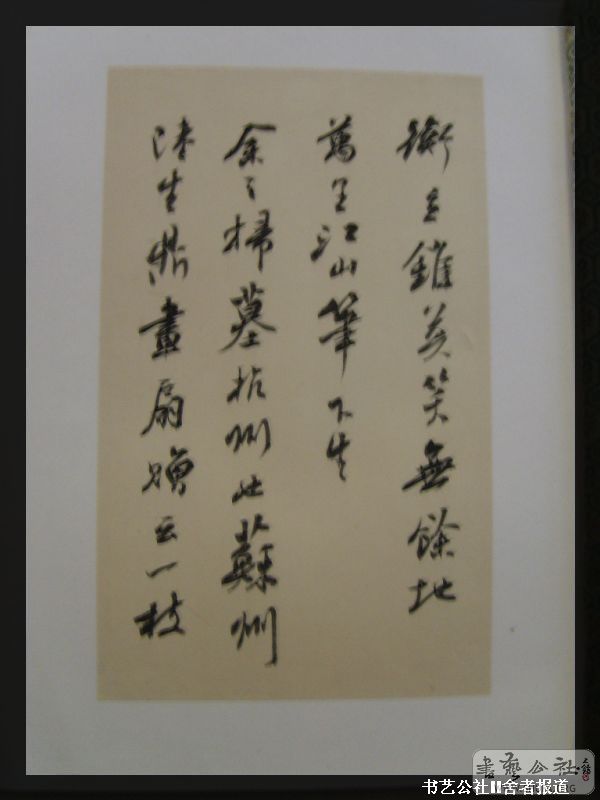 衡立錐莫笑無餘地
萬里江山筆下生
余之掃墓杭州也蘇州
陸生鼎畫扇贈云一枝
書藝公社
书艺公社II舍者报道